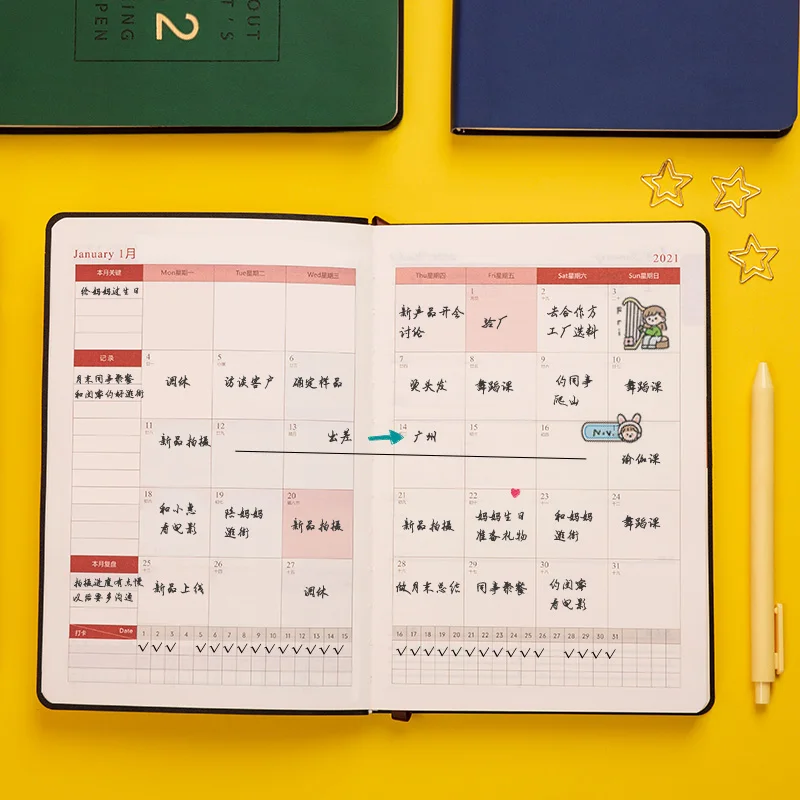 OUT
T'S
ING
PEN
2
January 1月
2021
本月关键
Mon星期一
Tue星期二
Wed星期三
Thu星期四
Fri星期五
Sat星期六
Sun星期日
给妈妈过生日
1
2
3
新产品开会
讨论
验厂
去合作方
工厂选料
Fri
记录
月末同事聚餐
和闺蜜约好逛街
4
5
6
7
8
9
10
调休
访谈客户
确定样品
烫头发
舞蹈课
约同事
爬山
舞蹈课
11
12
13
14
15
16
新品拍摄
出差
广州
N.V.
瑜伽课
18
19
20
21
22
23
24
和小惠
看电影
陪妈妈
逛街
新品拍摄
新品拍摄
妈妈生日
准备礼物
和妈妈
逛街
舞蹈课
本月复盘
拍摄进度有点慢
以后要多沟通
25
26
27
28
29
30
31
新品上线
调休
做月末总结
同事聚餐
约闺蜜
看电影
打卡
Date
1 2 3 4 5 6 7 8 9 10 11 12 13 14 15
16 17 18 19 20 21 22 23 24 25 26 27 28 29 30 31